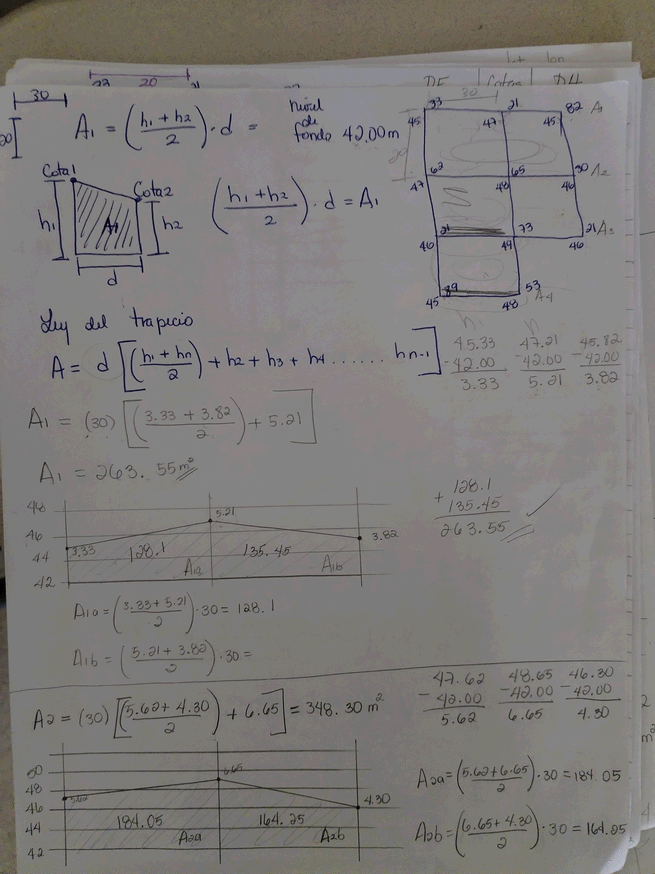 30
23 20 21
20
A1 = (h1 + h2 / 2) · d =
Nivel
de
fondo 42.00m
Cota1
Cota2
h1
A1
h2
d
(h1 + h2 / 2) · d = A1
30
33 21 82 A1
45 47 45
20
62 65 30 A2
47 48 46
21 73 21 A3
46 49 46
89 53
45 48 A4
Ley del trapecio
A = d [(h1 + hn / 2) + h2 + h3 + h4 ...... hn-1]
45.33 47.21 45.82
-42.00 -42.00 -42.00
3.33 5.21 3.82
A1 = (30) [(3.33 + 3.82 / 2) + 5.21]
A1 = 263.55 m²
+ 128.1
135.45
263.55
48
46
44
42
3.33
5.21
3.82
128.1
135.45
A1a
A1b
A1a = (3.33 + 5.21 / 2) · 30 = 128.1
A1b = (5.21 + 3.82 / 2) · 30 =
47.62 48.65 46.30
-42.00 -42.00 -42.00
5.62 6.65 4.30
A2 = (30) [(5.62 + 4.30 / 2) + 6.65] = 348.30 m²
50
48
46
44
42
5.62
6.65
4.30
184.05
164.25
A2a
A2b
A2a = (5.62 + 6.65 / 2) · 30 = 184.05
A2b = (6.65 + 4.30 / 2) · 30 = 164.25
m²